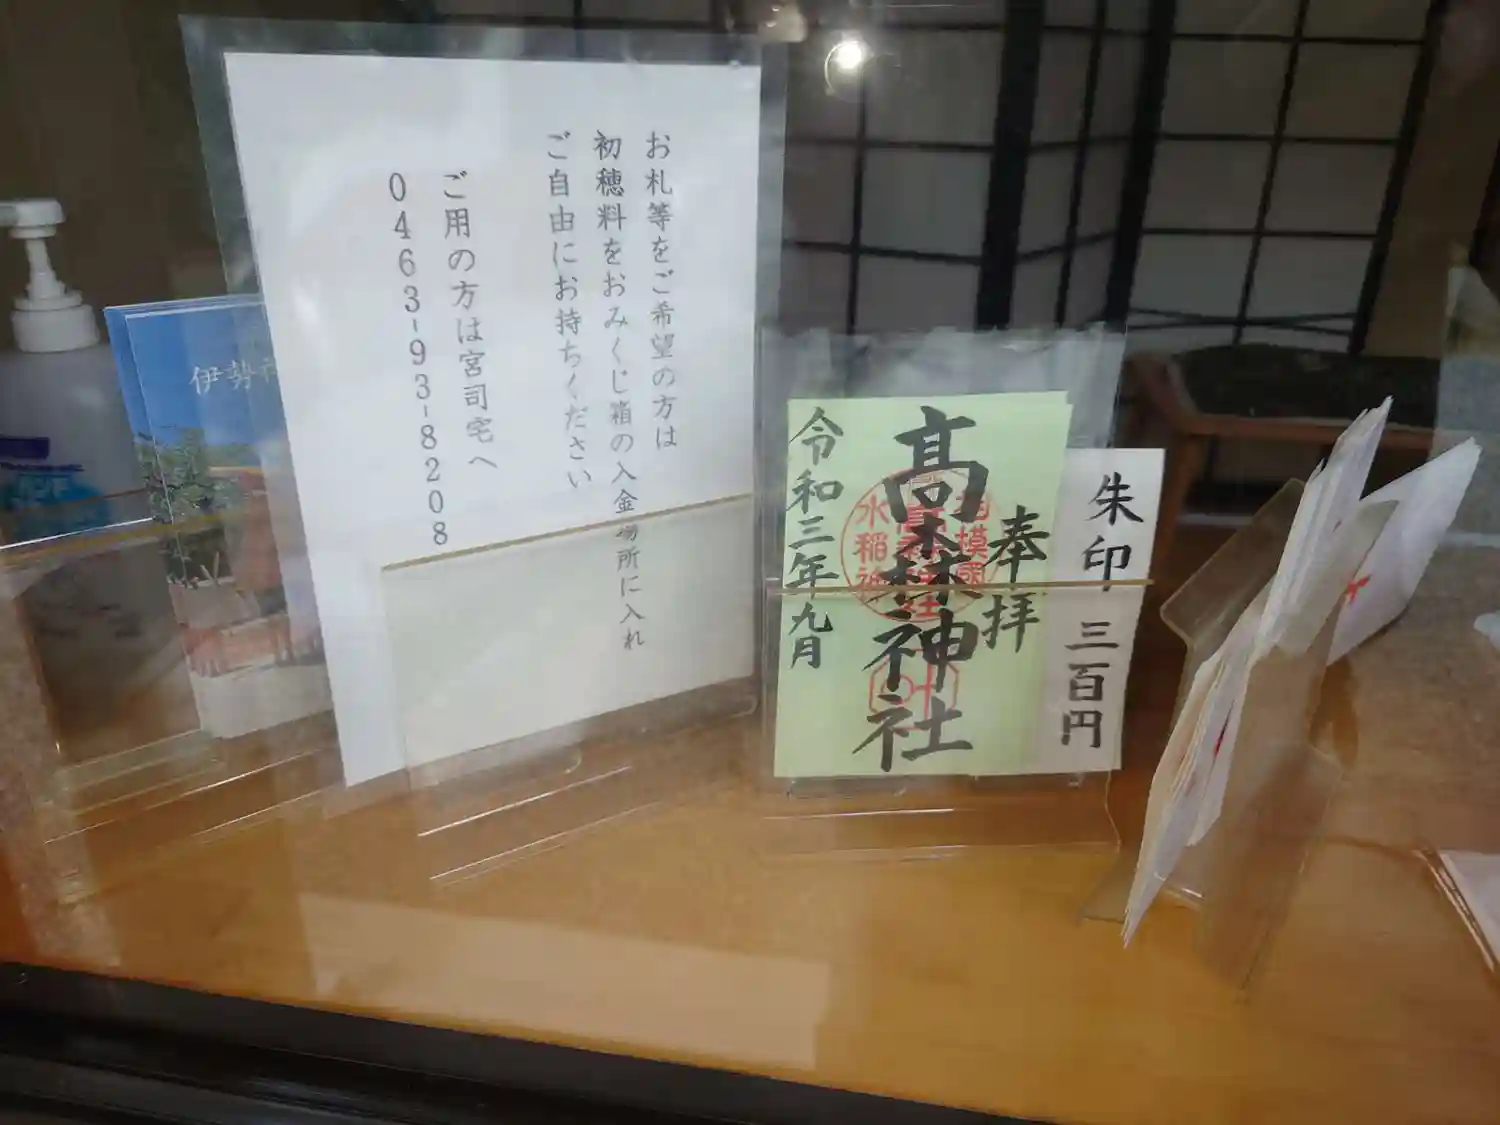 お札等をご希望の方は
初穂料をおみくじ箱の入金場所に入れ
ご自由にお持ちください
ご用の方は宮司宅へ
0463-93-8208
伊勢神
朱印 三百円
奉拝
高森神社
令和三年九月
水稲神